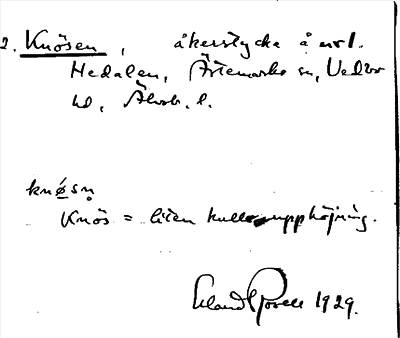 2. Knösen, åkerstycke å nrl.
Hedalen, Ärtemarks sn, Vedbo
hd, Älvsb. l.
knø̍sn̥
Knös = liten kulle, upphöjning.
1929.